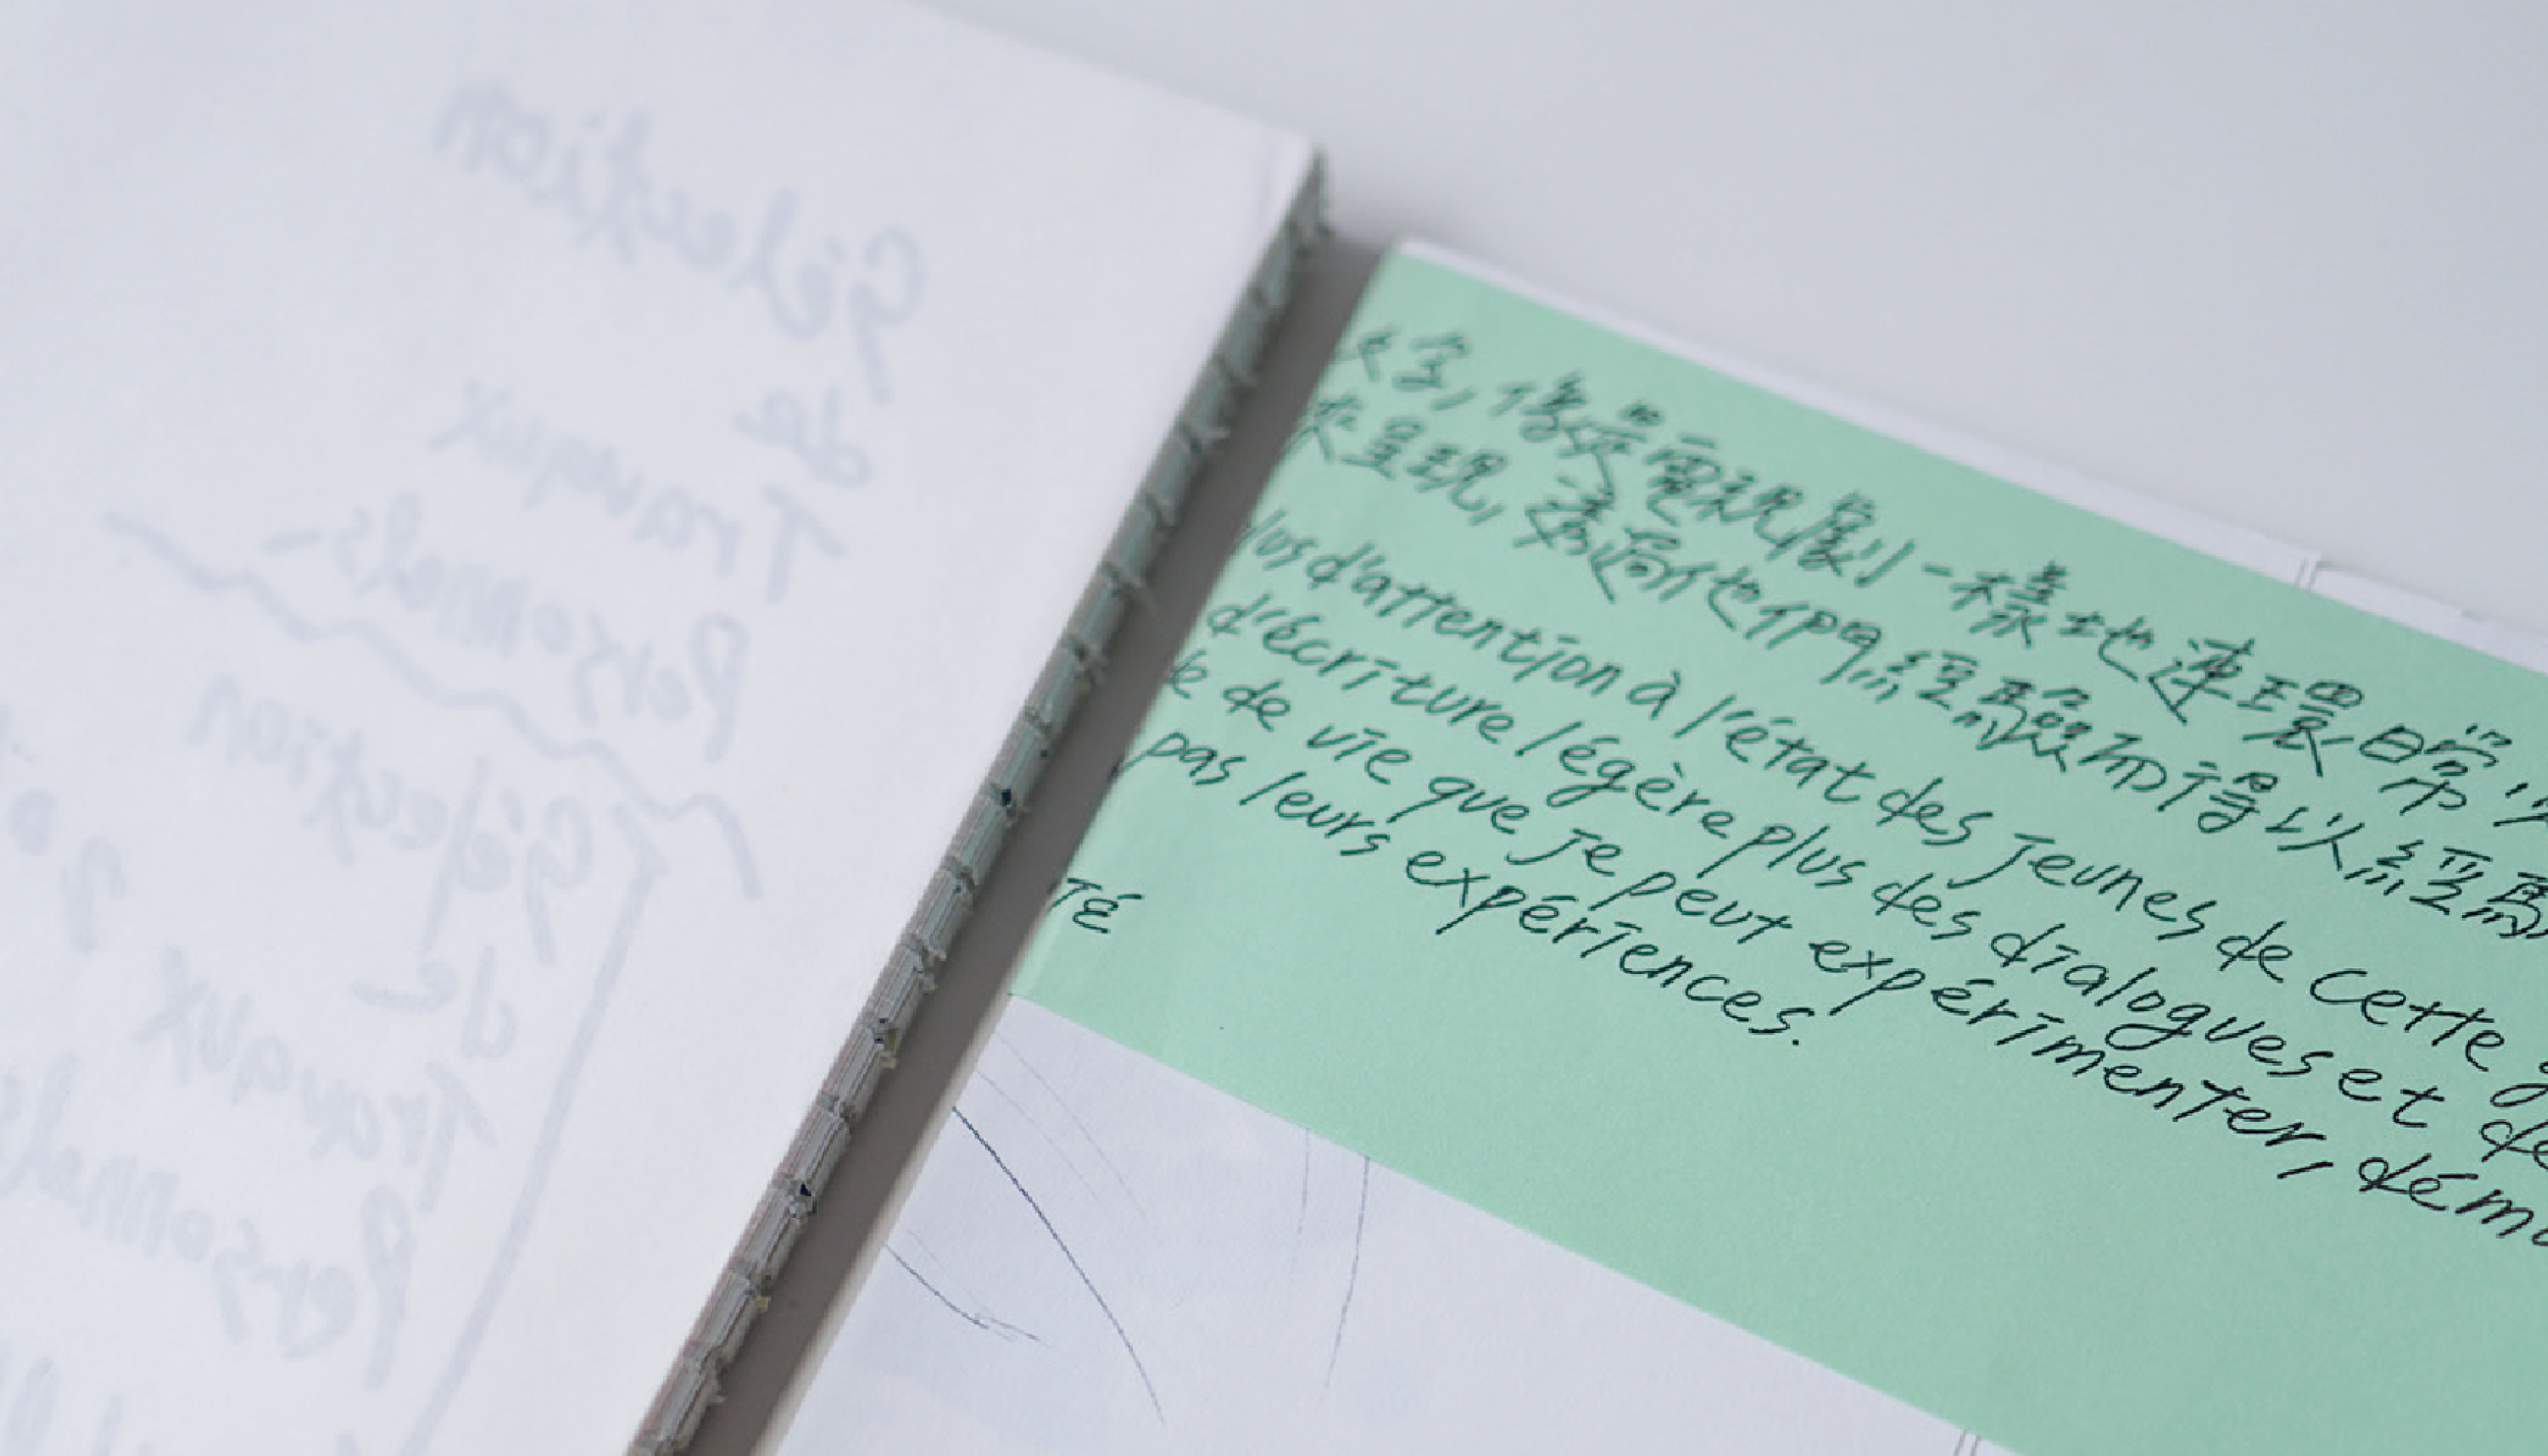 Sélection
de
Travaux
Personnels
Sélection
de
Travaux
Personnels
文字,像是電視劇一樣地連環日常,
來呈現,透過他們的經驗而得以經
lus d'attention à l'état des jeunes de cette
d'écriture légère plus des dialogues et de
de vie que je peut expérimenter, dém
pas leurs expériences.
TÉ